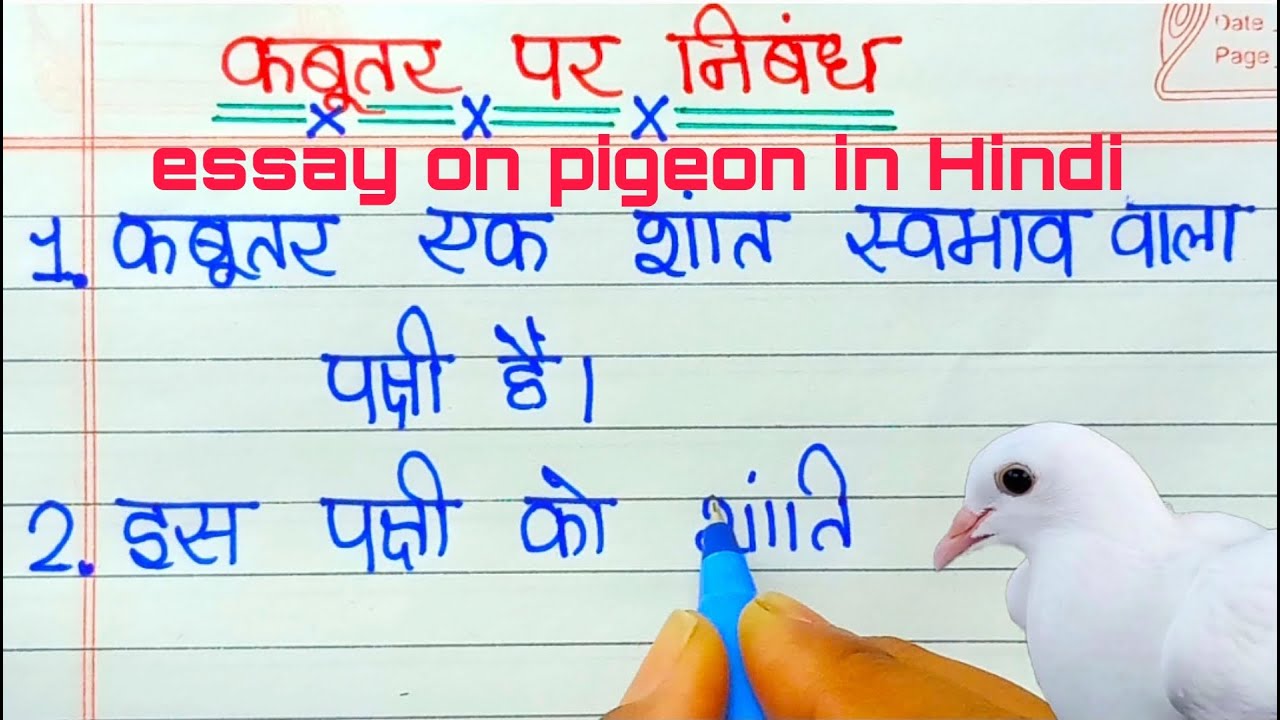 Date
Page
कबूतर पर निबंध
× × ×
essay on pigeon in Hindi
1. कबूतर एक शांत स्वभाव वाला
पक्षी है।
2. इस पक्षी को शांति